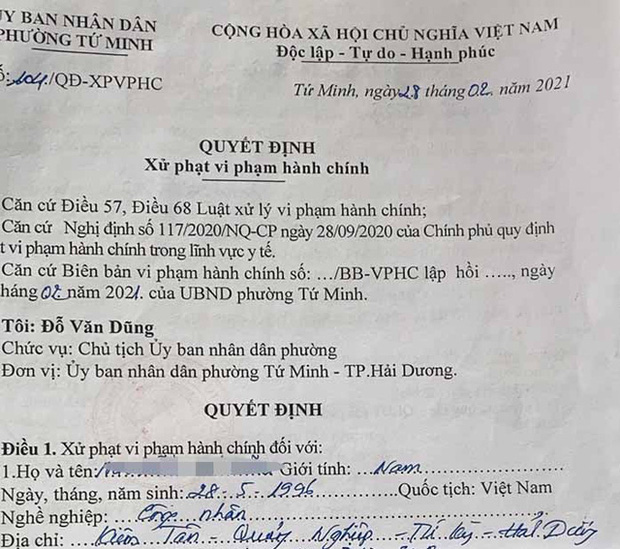 ỦY BAN NHÂN DÂN
PHƯỜNG TỨ MINH
CỘNG HÒA XÃ HỘI CHỦ NGHĨA VIỆT NAM
Độc lập - Tự do - Hạnh phúc
Số: 104/QĐ-XPVPHC
Tứ Minh, ngày 28 tháng 02 năm 2021
QUYẾT ĐỊNH
Xử phạt vi phạm hành chính
Căn cứ Điều 57, Điều 68 Luật xử lý vi phạm hành chính;
Căn cứ Nghị định số 117/2020/NQ-CP ngày 28/09/2020 của Chính phủ quy định
t vi phạm hành chính trong lĩnh vực y tế.
Căn cứ Biên bản vi phạm hành chính số: .../BB-VPHC lập hồi ....., ngày
háng 02 năm 2021. của UBND phường Tứ Minh.
Tôi: Đỗ Văn Dũng
Chức vụ: Chủ tịch Ủy ban nhân dân phường
Đơn vị: Ủy ban nhân dân phường Tứ Minh - TP.Hải Dương.
QUYẾT ĐỊNH
Điều 1. Xử phạt vi phạm hành chính đối với:
1.Họ và tên: Giới tính: ... Nam
Ngày, tháng, năm sinh: 28 - 5 - 1996 Quốc tịch: Việt Nam
Nghề nghiệp: ... Công nhân
Địa chỉ: ... Tân - Quảng Nghiệp - Tứ Kỳ - Hải Dương